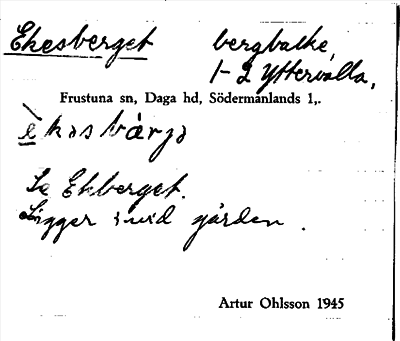 Ekesberget bergbacke,
1-2 Yttervalla,
Frustuna sn, Daga hd, Södermanlands l,.
è̱kasbärjə
Se Ekberget.
Ligger invid gården.
Artur Ohlsson 1945